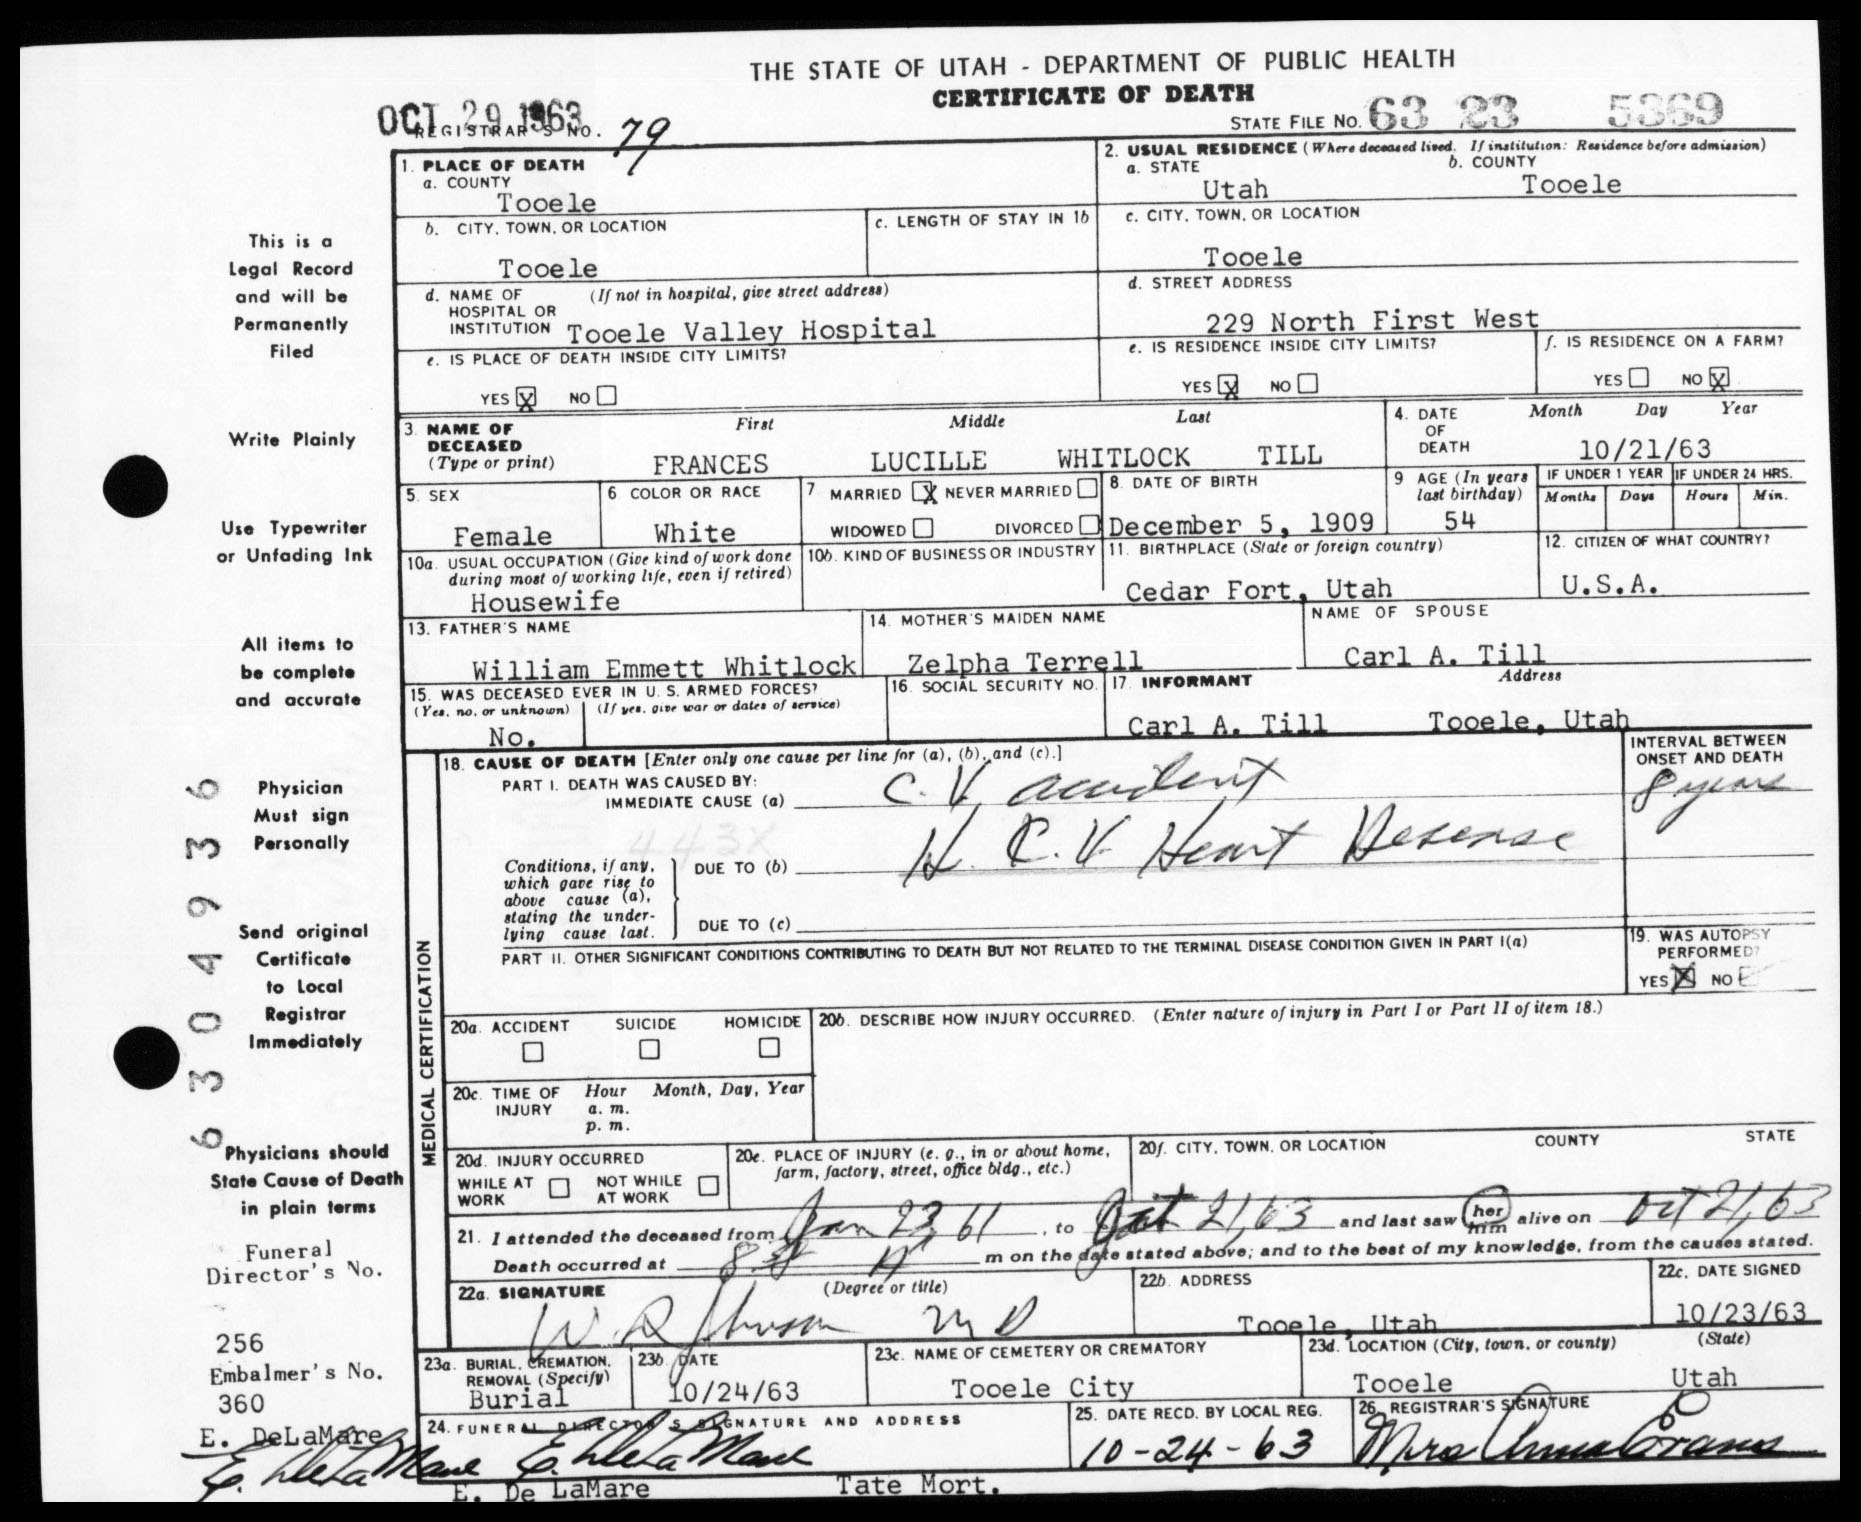 THE STATE OF UTAH - DEPARTMENT OF PUBLIC HEALTH
CERTIFICATE OF DEATH
OCT 29 1963
REGISTRAR'S NO. 79
STATE FILE NO. 63 23 5369
This is a
Legal Record
and will be
Permanently
Filed
Write Plainly
Use Typewriter
or Unfading Ink
All items to
be complete
and accurate
Physician
Must sign
Personally
Send original
Certificate
to Local
Registrar
Immediately
Physicians should
State Cause of Death
in plain terms
Funeral
Director's No.
256
Embalmer's No.
360
E. DeLaMare
E. DeLaMare
6304936
1. PLACE OF DEATH
a. COUNTY
Tooele
b. CITY, TOWN, OR LOCATION
Tooele
c. LENGTH OF STAY IN 1b
d. NAME OF HOSPITAL OR INSTITUTION (If not in hospital, give street address)
Tooele Valley Hospital
e. IS PLACE OF DEATH INSIDE CITY LIMITS?
YES X NO
2. USUAL RESIDENCE (Where deceased lived. If institution: Residence before admission)
a. STATE
Utah
b. COUNTY
Tooele
c. CITY, TOWN, OR LOCATION
Tooele
d. STREET ADDRESS
229 North First West
e. IS RESIDENCE INSIDE CITY LIMITS?
YES X NO
f. IS RESIDENCE ON A FARM?
YES NO X
3. NAME OF DECEASED (Type or print)
First Middle Last
FRANCES LUCILLE WHITLOCK TILL
4. DATE OF DEATH
Month Day Year
10/21/63
5. SEX
Female
6 COLOR OR RACE
White
7 MARRIED X NEVER MARRIED
WIDOWED DIVORCED
8. DATE OF BIRTH
December 5, 1909
9 AGE (In years last birthday)
54
IF UNDER 1 YEAR
Months Days
IF UNDER 24 HRS.
Hours Min.
10a. USUAL OCCUPATION (Give kind of work done during most of working life, even if retired)
Housewife
10b. KIND OF BUSINESS OR INDUSTRY
11. BIRTHPLACE (State or foreign country)
Cedar Fort, Utah
12. CITIZEN OF WHAT COUNTRY?
U.S.A.
13. FATHER'S NAME
William Emmett Whitlock
14. MOTHER'S MAIDEN NAME
Zelpha Terrell
NAME OF SPOUSE
Carl A. Till
15. WAS DECEASED EVER IN U. S. ARMED FORCES?
(Yes, no, or unknown) (If yes, give war or dates of service)
No.
16. SOCIAL SECURITY NO.
17. INFORMANT Address
Carl A. Till Tooele, Utah
MEDICAL CERTIFICATION
18. CAUSE OF DEATH [Enter only one cause per line for (a), (b), and (c).]
PART I. DEATH WAS CAUSED BY:
IMMEDIATE CAUSE (a) C. V. accident
INTERVAL BETWEEN ONSET AND DEATH
8 years
443X
Conditions, if any, which gave rise to above cause (a), stating the underlying cause last.
DUE TO (b) H. C. V. Heart Desease
DUE TO (c)
PART II. OTHER SIGNIFICANT CONDITIONS CONTRIBUTING TO DEATH BUT NOT RELATED TO THE TERMINAL DISEASE CONDITION GIVEN IN PART I(a)
19. WAS AUTOPSY PERFORMED?
YES X NO
20a. ACCIDENT SUICIDE HOMICIDE
20b. DESCRIBE HOW INJURY OCCURRED. (Enter nature of injury in Part I or Part II of item 18.)
20c. TIME OF INJURY
Hour Month, Day, Year
a. m.
p. m.
20d. INJURY OCCURRED
WHILE AT WORK NOT WHILE AT WORK
20e. PLACE OF INJURY (e. g., in or about home, farm, factory, street, office bldg., etc.)
20f. CITY, TOWN, OR LOCATION COUNTY STATE
21. I attended the deceased from Jan 23, 61, to Oct 21, 63 and last saw her him alive on Oct 21, 63
Death occurred at m on the date stated above; and to the best of my knowledge, from the causes stated.
22a. SIGNATURE (Degree or title)
MD
22b. ADDRESS
Tooele, Utah
22c. DATE SIGNED
10/23/63
23a. BURIAL, CREMATION, REMOVAL (Specify)
Burial
23b. DATE
10/24/63
23c. NAME OF CEMETERY OR CREMATORY
Tooele City
23d. LOCATION (City, town, or county) (State)
Tooele Utah
24. FUNERAL DIRECTOR'S SIGNATURE AND ADDRESS
E. DeLaMare
E. De LaMare Tate Mort.
25. DATE RECD. BY LOCAL REG.
10-24-63
26. REGISTRAR'S SIGNATURE
Mrs Anna Evans